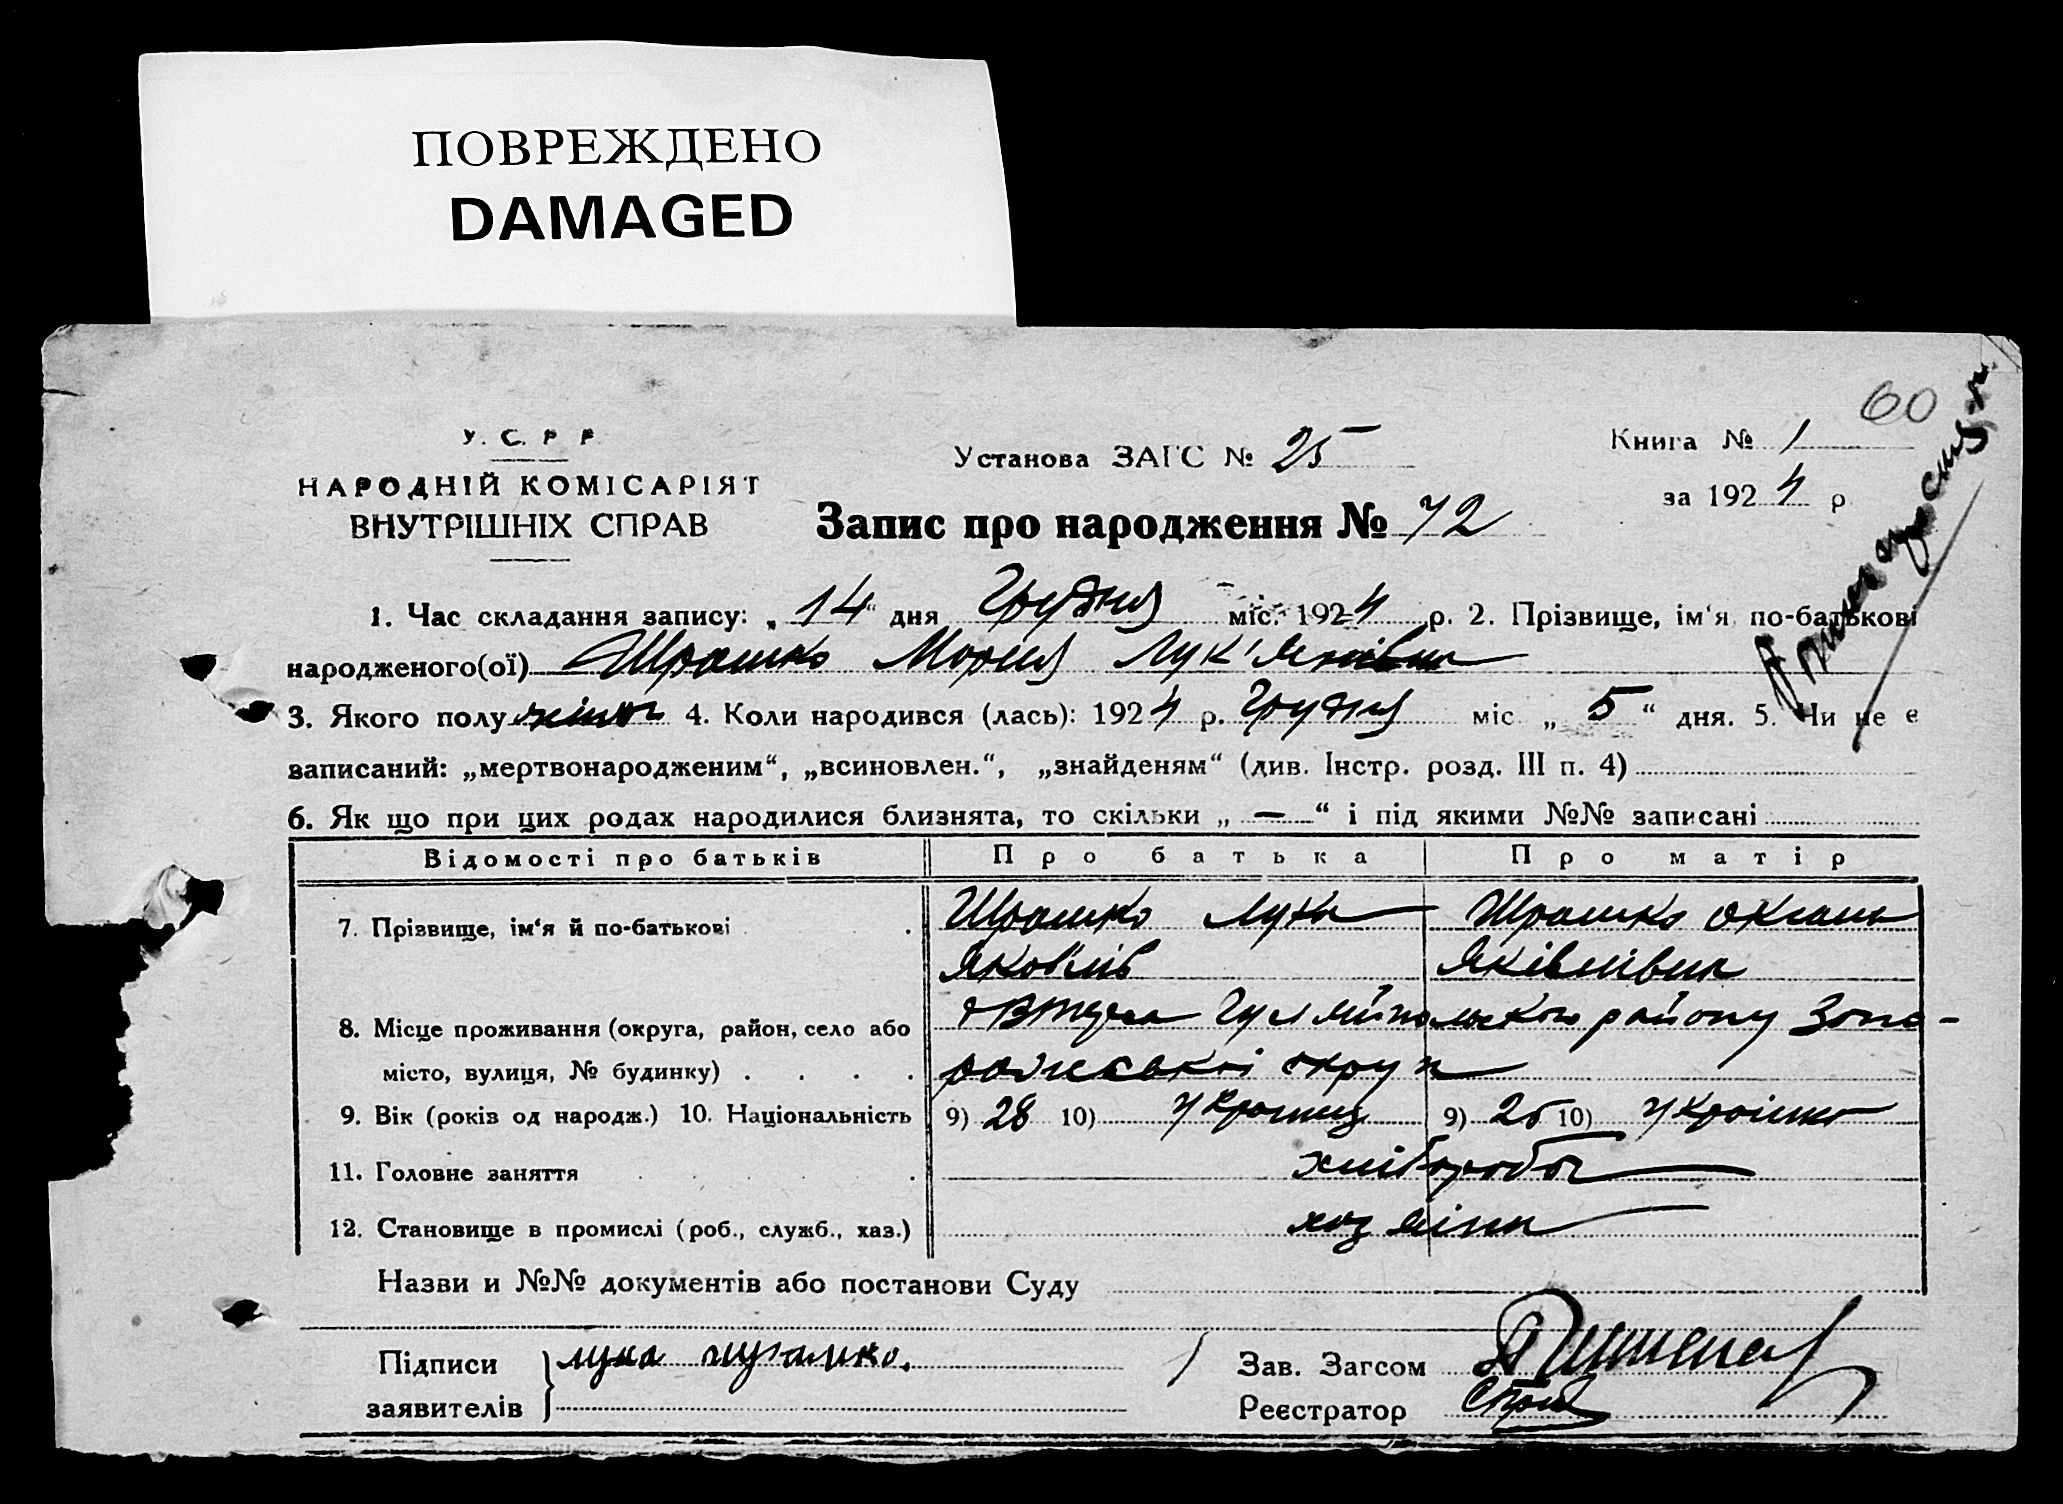 ПОВРЕЖДЕНО
DAMAGED
60
У. С. Р. Р.
НАРОДНІЙ КОМІСАРІЯТ
ВНУТРІШНІХ СПРАВ
Установа ЗАГС № 25
Книга № 1
за 1924 р.
Запис про народження № 72
1. Час складання запису: „14“ дня Грудня міс. 1924 р. 2. Прізвище, ім‘я по-батькові
народженого(ої) Мария Лук'янівна
3. Якого полу жіноч 4. Коли народився (лась): 1924 р. Грудня міс „5“ дня. 5. Чи не є
записаний: „мертвонародженим“, „всиновлен.“, „знайденям“ (див. Інстр. розд. III п. 4)
6. Як що при цих родах народилися близнята, то скільки „—“ і під якими №№ записані
Відомості про батьків Про батька Про матір
7. Прізвище, ім‘я й по-батькові Лука Оксана
Яковлів Яківлівна
8. Місце проживання (округа, район, село або Гуляйпольского району Запо-
місто, вулиця, № будинку) рожської округи
9. Вік (років од народж.) 10. Національність 9) 28 10) Українец 9) 25 10) Українка
11. Головне заняття хліборобст
12. Становище в промислі (роб., служб., хаз.) хазяіни
Назви и №№ документів або постанови Суду
Підписи Лука Зав. Загсом
заявителів Реєстратор